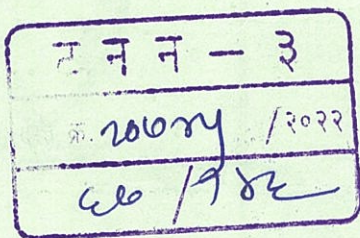 ट न न - ३
क्र. २०७४५ /२०२२
६७ /१४६